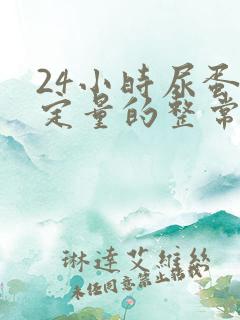 24小时尿蛋
定量的整常
琳達艾維絲
未经同意禁止转载